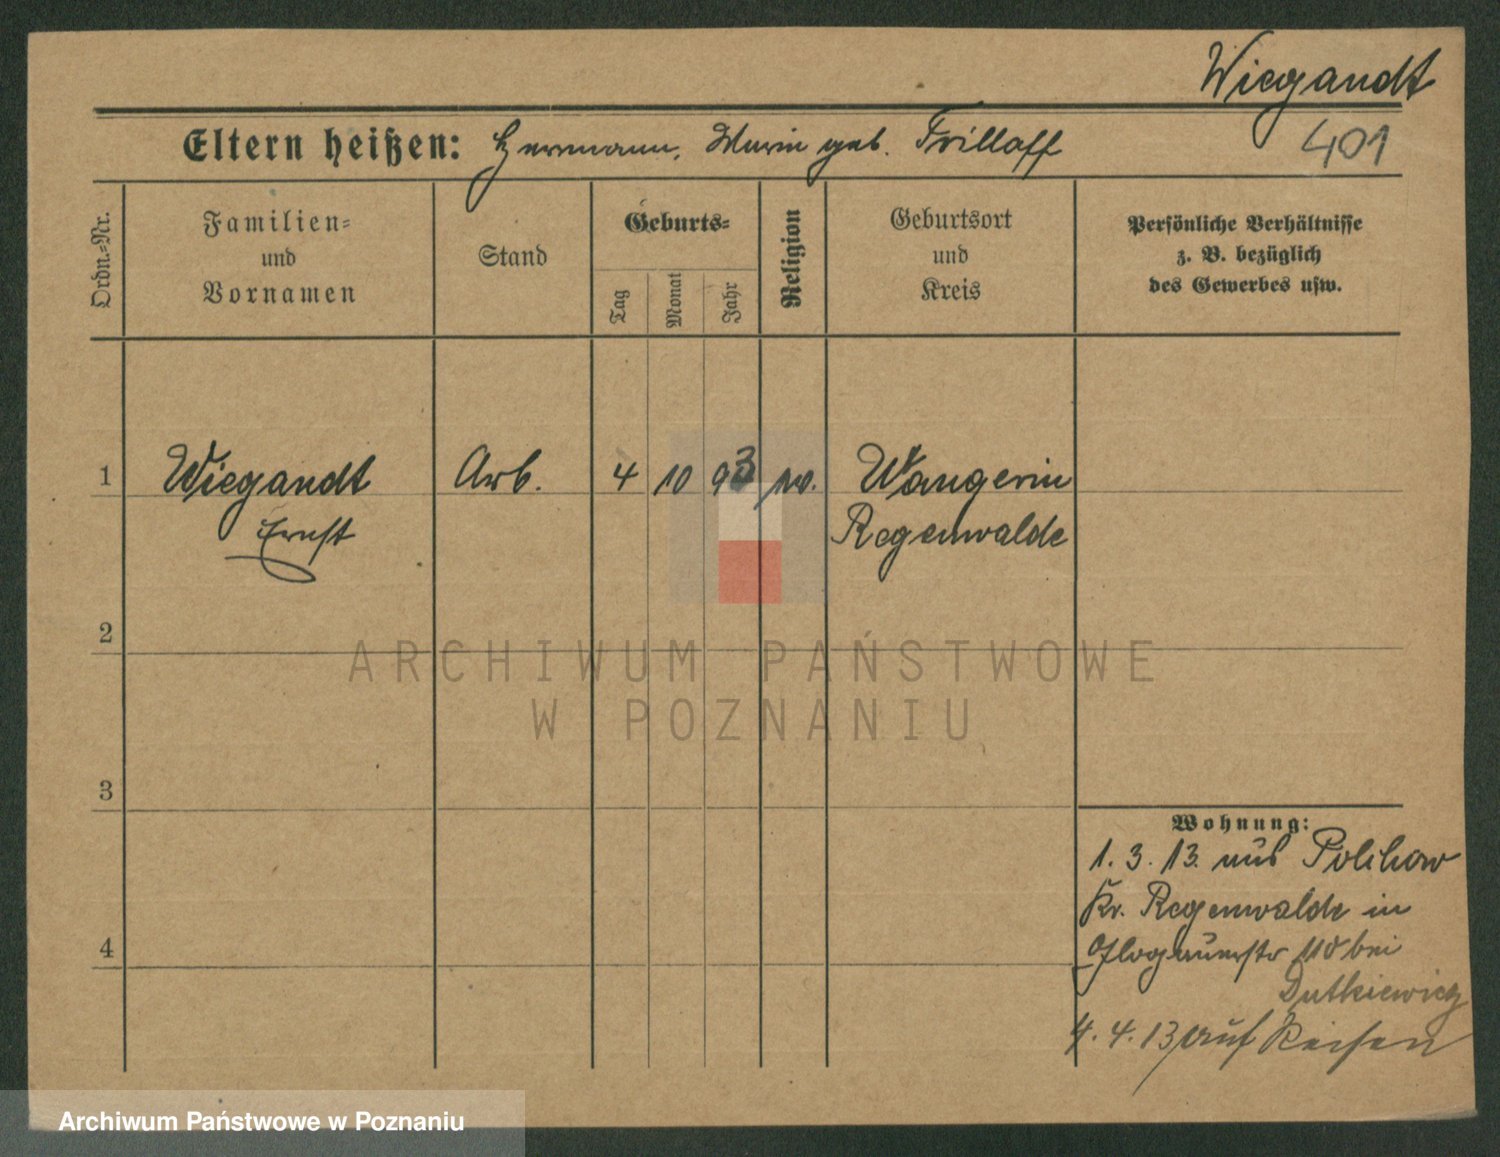 Wiegandt
401
Eltern heißen: Hermann, Marie geb. Trillaff
Ordn.=Nr.
Familien=
und
Vornamen
Stand
Geburts=
Tag
Monat
Jahr
Religion
Geburtsort
und
Kreis
Persönliche Verhältnisse
z. B. bezüglich
des Gewerbes usw.
1 Wiegandt Arb. 4 10 93 Wangerin
Ernst Regenwalde
2
3
4
Wohnung:
1. 3. 13. aus Polchow
Kr. Regenwalde in
Glogauerstr 110 bei
Dutkiewicz
4. 4. 13 auf Reisen
ARCHIWUM PAŃSTWOWE
W POZNANIU
Archiwum Państwowe w Poznaniu